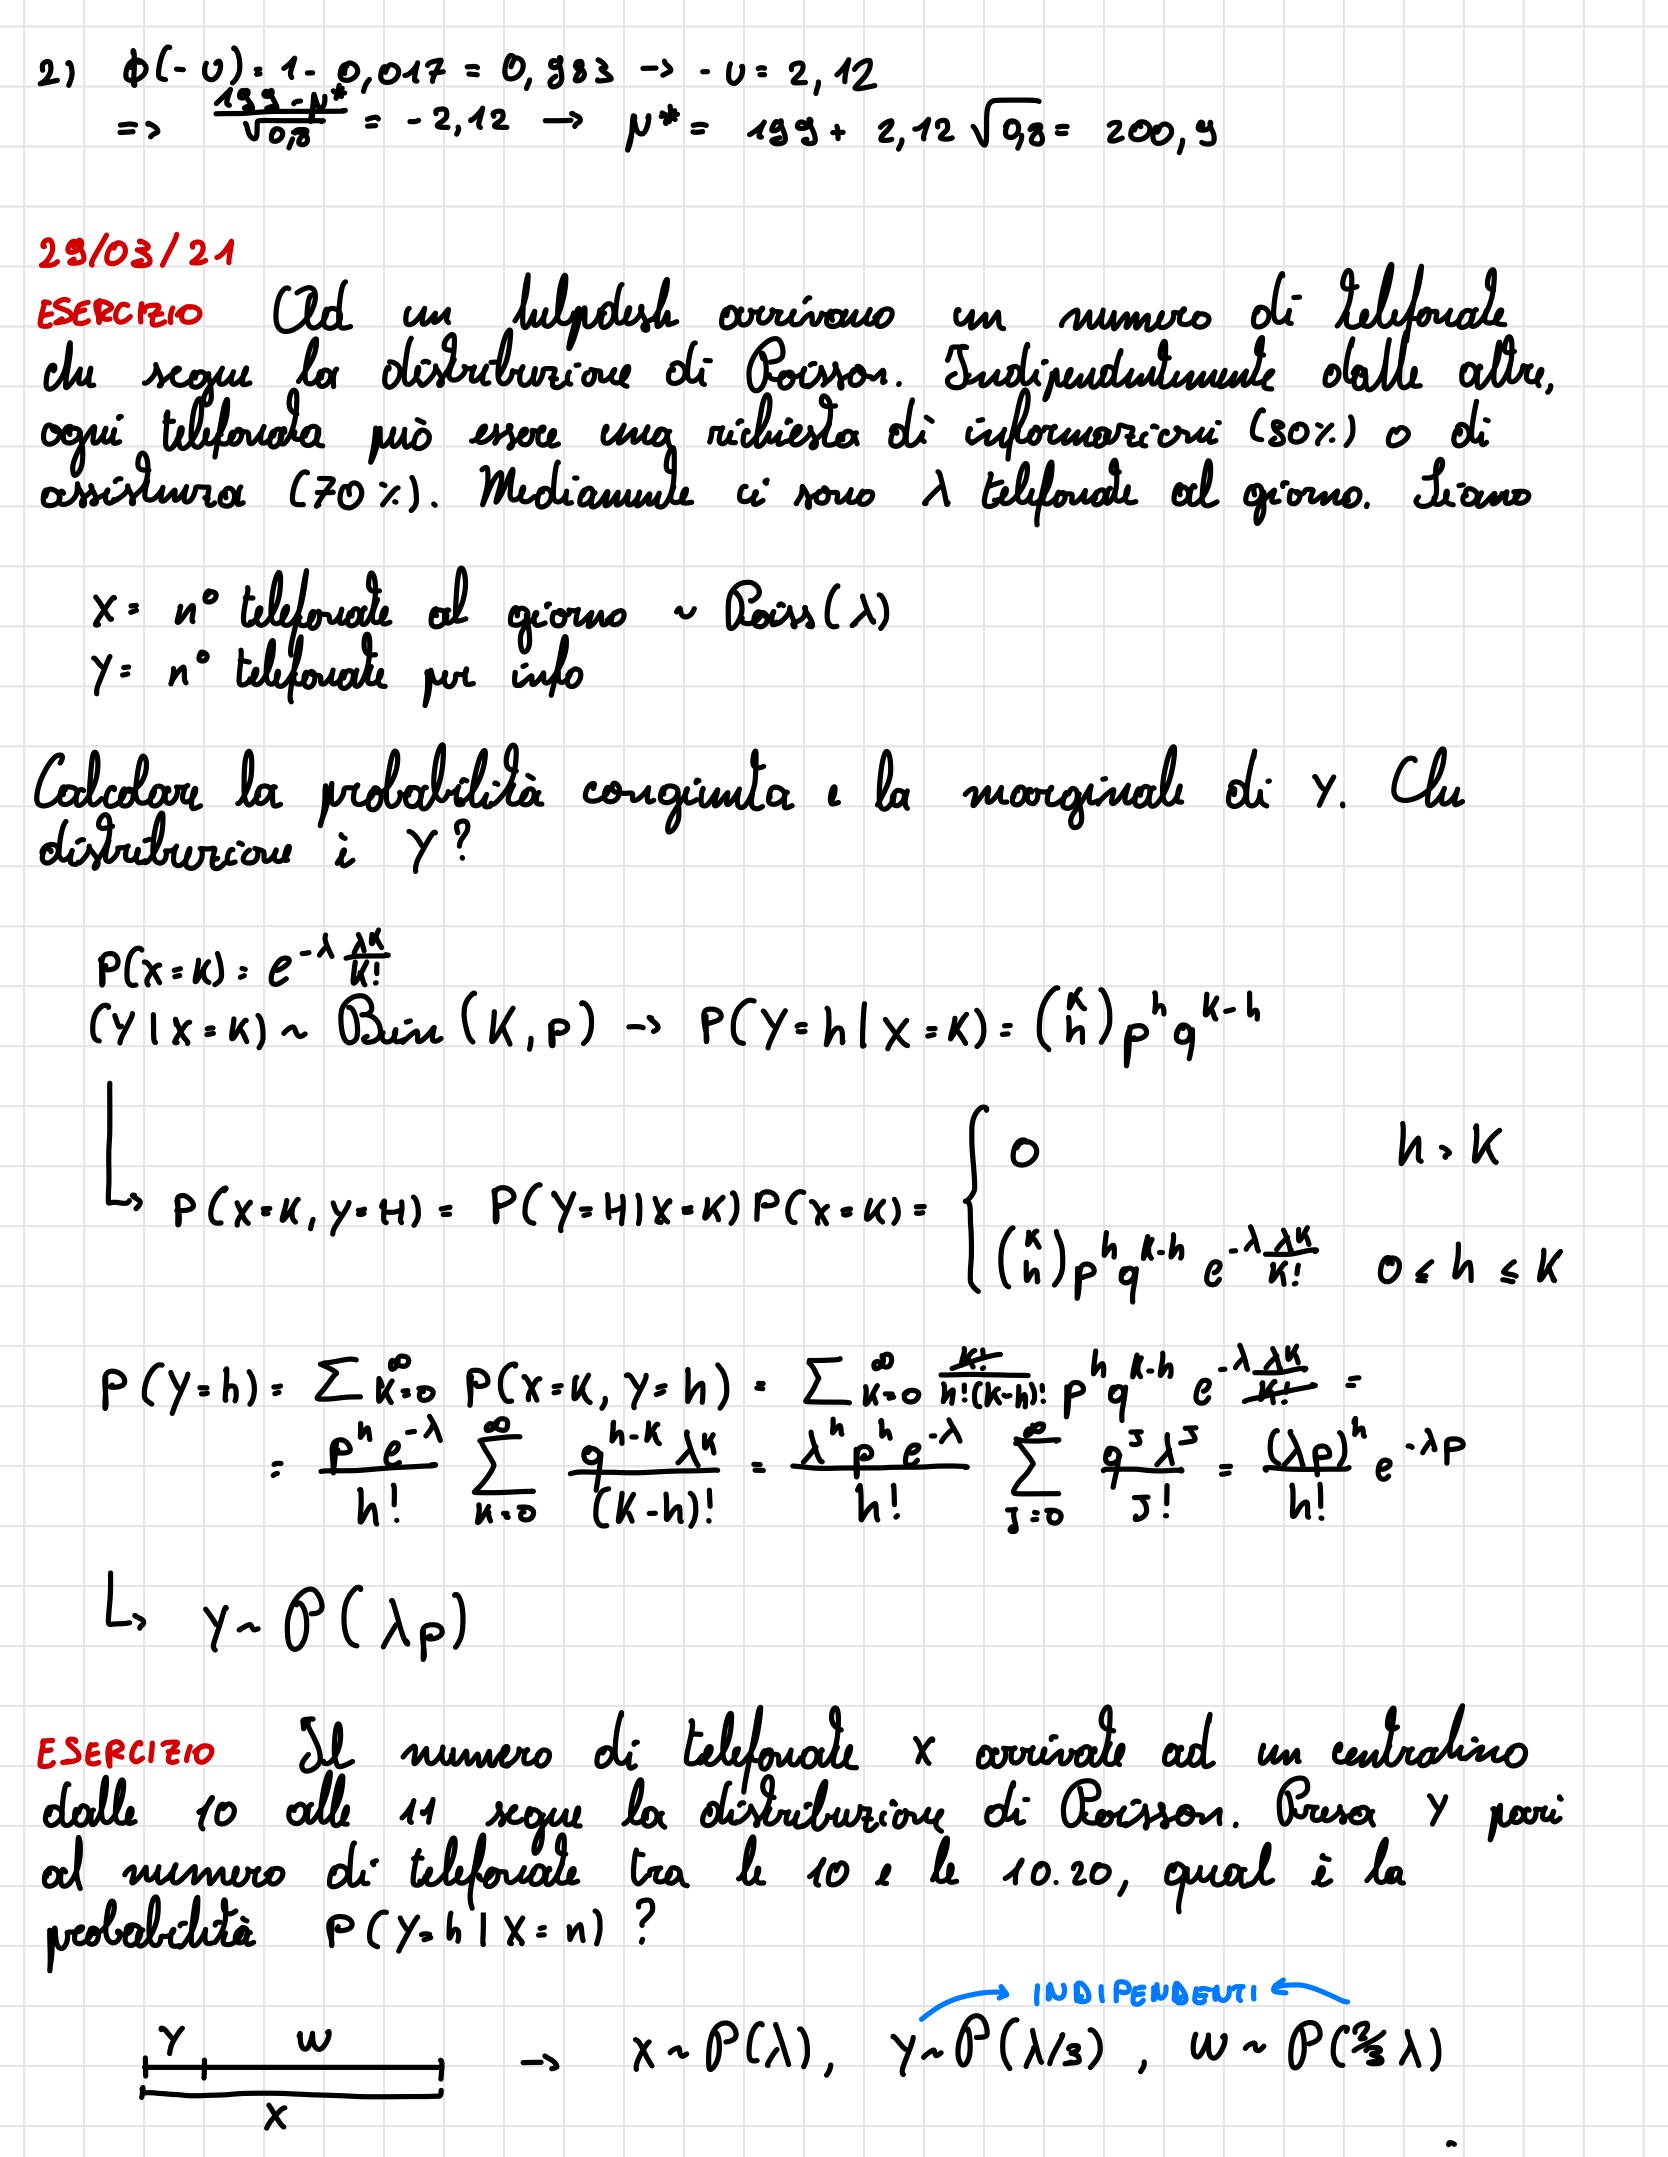 2) ϕ(-υ) = 1 - 0,017 = 0,983 → -υ = 2,12
=> (199 - μ*)/√0,8 = -2,12 → μ* = 199 + 2,12 √0,8 = 200,9
29/03/21
ESERCIZIO Ad un helpdesk arrivano un numero di telefonate
che segue la distribuzione di Poisson. Indipendentemente dalle altre,
ogni telefonata può essere una richiesta di informazioni (30%) o di
assistenza (70%). Mediamente ci sono λ telefonate al giorno. Siano
X = n° telefonate al giorno ~ Poiss(λ)
Y = n° telefonate per info
Calcolare la probabilità congiunta e la marginale di Y. Che
distribuzione è Y?
P(X=K) = e^{-λ} λ^K/K!
(Y|X=K) ~ Bin(K,p) → P(Y=h|X=K) = (K h) p^h q^{K-h}
0 h > K
↳ P(X=K, Y=H) = P(Y=H|X=K) P(X=K) = {
(K h) p^h q^{K-h} e^{-λ} λ^K/K! 0 ≤ h ≤ K
P(Y=h) = Σ_{K=0}^∞ P(X=K, Y=h) = Σ_{K=0}^∞ K!/(h!(K-h)!) p^h q^{K-h} e^{-λ} λ^K/K! =
= (p^h e^{-λ})/h! Σ_{K=0}^∞ (q^{h-K} λ^K)/(K-h)! = (λ^h p^h e^{-λ})/h! Σ_{J=0}^∞ (q^J λ^J)/J! = (λp)^h/h! e^{-λp}
↳ Y ~ P(λp)
ESERCIZIO Il numero di telefonate X arrivate ad un centralino
dalle 10 alle 11 segue la distribuzione di Poisson. Presa Y pari
al numero di telefonate tra le 10 e le 10.20, qual è la
probabilità P(Y=h|X=n)?
INDIPENDENTI
Y W → X ~ P(λ), Y ~ P(λ/3), W ~ P(2/3 λ)
X